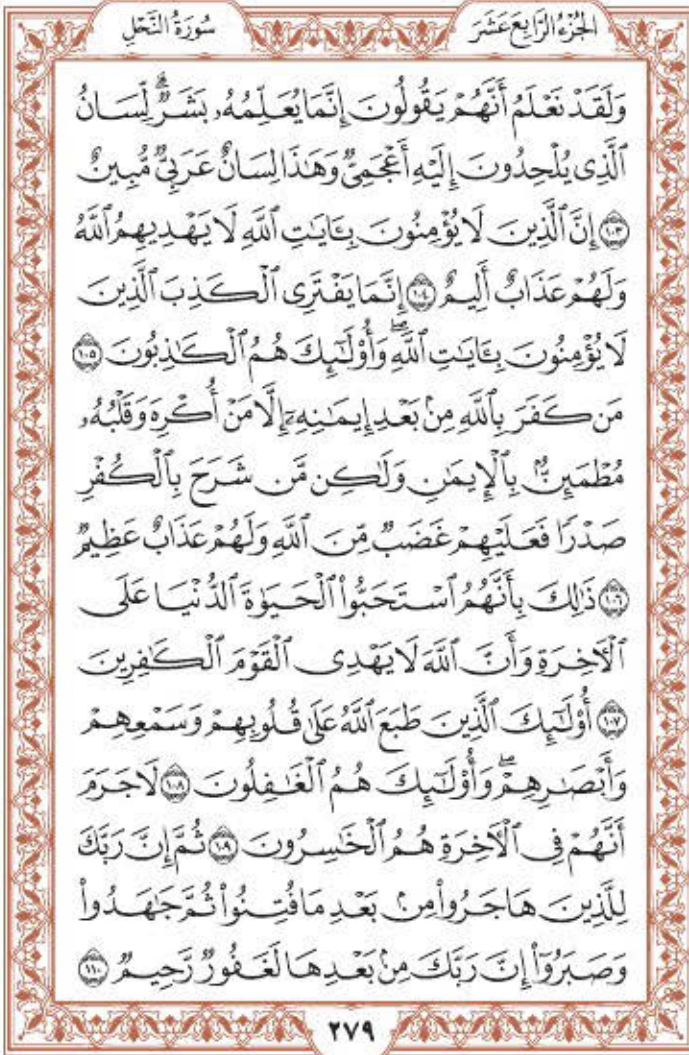 الجُزْءُ الرَّابِعَ عَشَرَ
سُورَةُ النَّحْلِ
وَلَقَدْ نَعْلَمُ أَنَّهُمْ يَقُولُونَ إِنَّمَا يُعَلِّمُهُۥ بَشَرٌۗ لِّسَانُ
ٱلَّذِى يُلْحِدُونَ إِلَيْهِ أَعْجَمِىٌّ وَهَٰذَا لِسَانٌ عَرَبِىٌّ مُّبِينٌ
١٠٣ إِنَّ ٱلَّذِينَ لَا يُؤْمِنُونَ بِـَٔايَٰتِ ٱللَّهِ لَا يَهْدِيهِمُ ٱللَّهُ
وَلَهُمْ عَذَابٌ أَلِيمٌ ١٠٤ إِنَّمَا يَفْتَرِى ٱلْكَذِبَ ٱلَّذِينَ
لَا يُؤْمِنُونَ بِـَٔايَٰتِ ٱللَّهِۖ وَأُوْلَٰٓئِكَ هُمُ ٱلْكَٰذِبُونَ ١٠٥
مَن كَفَرَ بِٱللَّهِ مِنۢ بَعْدِ إِيمَٰنِهِۦٓ إِلَّا مَنْ أُكْرِهَ وَقَلْبُهُۥ
مُطْمَئِنٌّۢ بِٱلْإِيمَٰنِ وَلَٰكِن مَّن شَرَحَ بِٱلْكُفْرِ
صَدْرًا فَعَلَيْهِمْ غَضَبٌ مِّنَ ٱللَّهِ وَلَهُمْ عَذَابٌ عَظِيمٌ
١٠٦ ذَٰلِكَ بِأَنَّهُمُ ٱسْتَحَبُّواْ ٱلْحَيَوٰةَ ٱلدُّنْيَا عَلَى
ٱلْأٓخِرَةِ وَأَنَّ ٱللَّهَ لَا يَهْدِى ٱلْقَوْمَ ٱلْكَٰفِرِينَ
١٠٧ أُوْلَٰٓئِكَ ٱلَّذِينَ طَبَعَ ٱللَّهُ عَلَىٰ قُلُوبِهِمْ وَسَمْعِهِمْ
وَأَبْصَٰرِهِمْۖ وَأُوْلَٰٓئِكَ هُمُ ٱلْغَٰفِلُونَ ١٠٨ لَا جَرَمَ
أَنَّهُمْ فِى ٱلْأٓخِرَةِ هُمُ ٱلْخَٰسِرُونَ ١٠٩ ثُمَّ إِنَّ رَبَّكَ
لِلَّذِينَ هَاجَرُواْ مِنۢ بَعْدِ مَا فُتِنُواْ ثُمَّ جَٰهَدُواْ
وَصَبَرُوٓاْ إِنَّ رَبَّكَ مِنۢ بَعْدِهَا لَغَفُورٌ رَّحِيمٌ ١١٠
٢٧٩